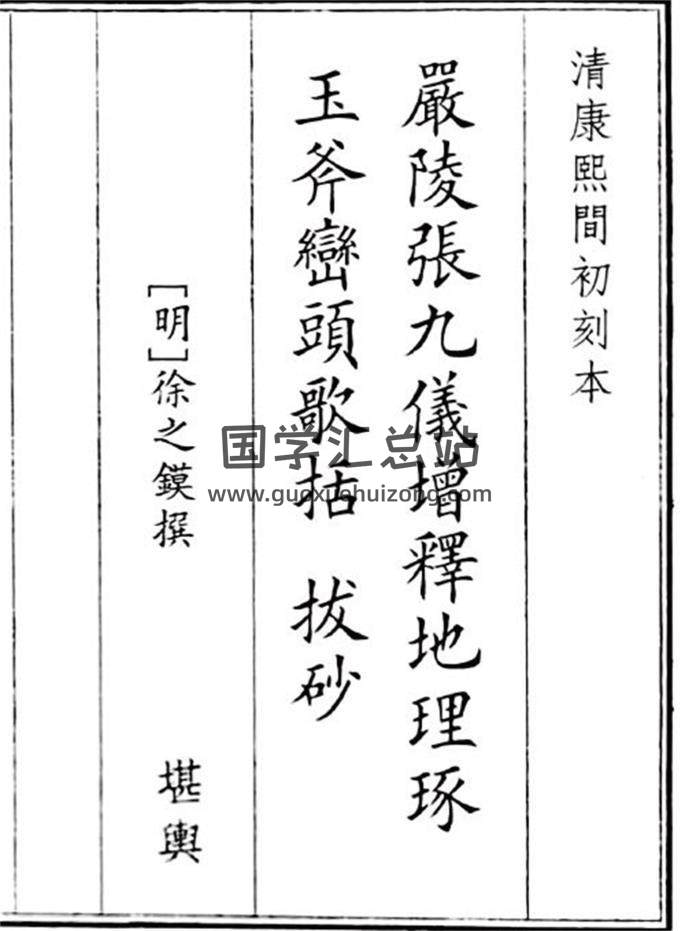 清康熙間初刻本
嚴陵張九儀增釋地理琢
玉斧巒頭歌括 拔砂
[明]徐之鏌撰
堪輿
国学汇总站
www.guoxuehuizong.com